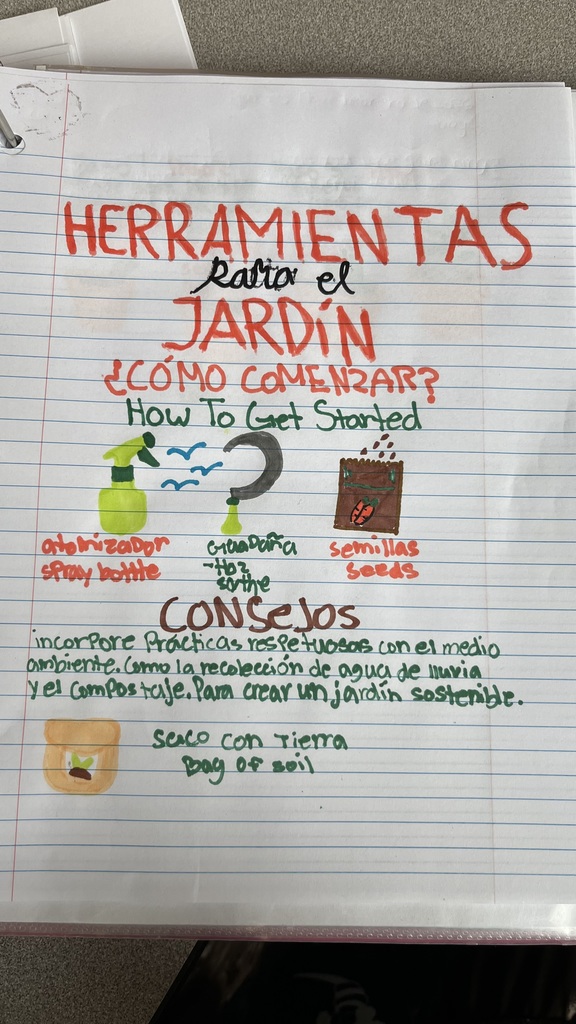 HERRAMIENTAS
Para el
JARDÍN
¿CÓMO COMENZAR?
How To Get Started
atomizador
spray bottle
Guadaña
semillas
seeds
CONSEJOS
incorpore Prácticas respetuosas con el medio
ambiente. Como la recolección de agua de lluvia
y el compostaje. Para crear un jardín sostenible.
saco con Tierra
Bag of soil